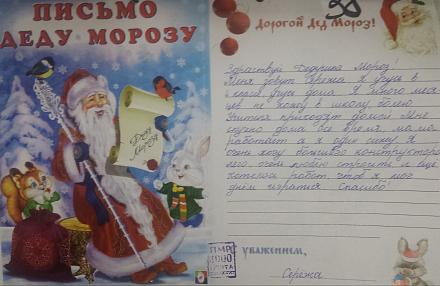 ПИСЬМО
ДЕДУ МОРОЗУ
Деду
Морозу
30
Дорогой Дед Мороз!
Здравствуй Дедушка Мороз!
Меня зовут Сережа. Я учусь в
классе учусь дома. Я много меся
цев не хожу в школу болею
Учителя приходят домой. Мне
скучно дома все время, мама
работает а я один сижу. Я
очень хочу большого конструктора
лего очень люблю строить и еще
хотелось робот, чтоб я мог
с ним играться. Спасибо!
УВАЖЕНИЕМ,
Сережа
ПМР
3000
ПОЧТА